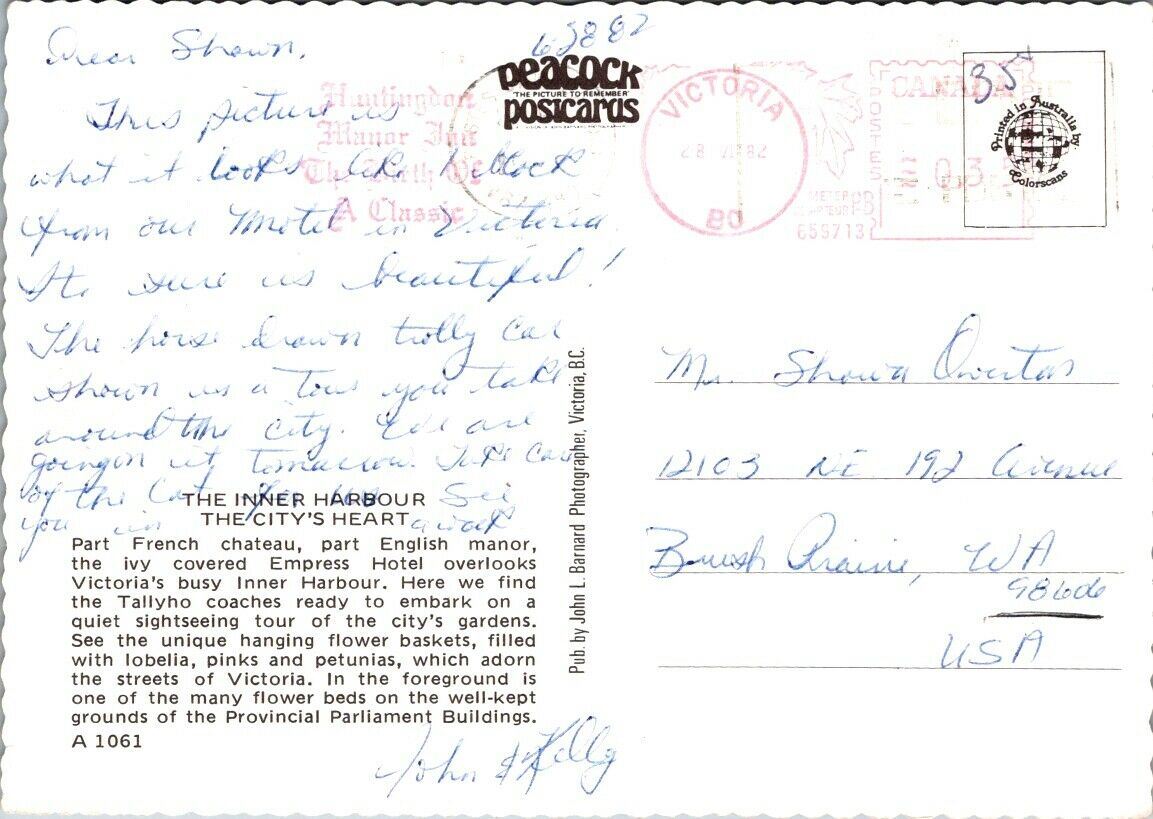 62882
Dear Shown,
This picture is
what it looks like 1 block
from our Motel in Victoria.
It sure is beautiful!
The horse drawn trolly car
shown is a tour you take
around the city. We are
going on it tomorrow. Take care
of the Cat for us. See
you in a week
John & Kelly
Huntingdon
Manor Inn
A Classic
peacock
"THE PICTURE TO REMEMBER"
postcards
VICTORIA
28 VI 82
BC
CANADA
POSTES
035
METER PB
659713
35¢
Printed in Australia by
Colorscans
Mr. Shown Overton
12103 NE 192 Avenue
Brush Prairie, WA
98606
USA
Pub. by John L. Barnard Photographer, Victoria, B.C.
THE INNER HARBOUR
THE CITY'S HEART
Part French chateau, part English manor,
the ivy covered Empress Hotel overlooks
Victoria's busy Inner Harbour. Here we find
the Tallyho coaches ready to embark on a
quiet sightseeing tour of the city's gardens.
See the unique hanging flower baskets, filled
with lobelia, pinks and petunias, which adorn
the streets of Victoria. In the foreground is
one of the many flower beds on the well-kept
grounds of the Provincial Parliament Buildings.
A 1061